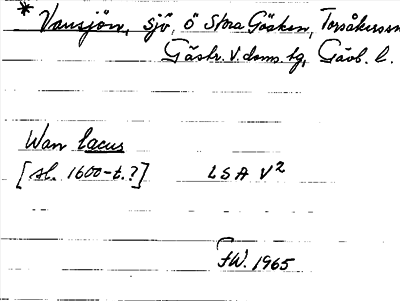 * Vansjön, sjö, ö Stora Gösken, Torsåkers sn
Gästr. V. doms. tg, Gävb. l.
Wan lacus
[sl. 1600-t.?] LSA V²
FW. 1965